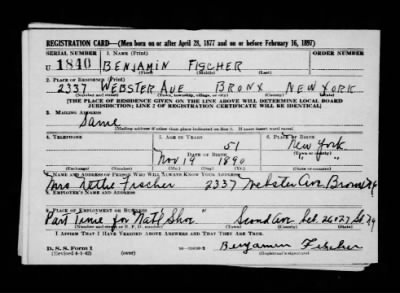 REGISTRATION CARD—(Men born on or after April 28, 1877 and on or before February 16, 1897)
SERIAL NUMBER 1. NAME (Print)
U 1840 BENJAMIN FISCHER
(First) (Middle) (Last)
2. PLACE OF RESIDENCE (Print)
2337 WEBSTER AVE BRONX NEW YORK
(Number and street) (Town, township, village, or city) (County) (State)
[THE PLACE OF RESIDENCE GIVEN ON THE LINE ABOVE WILL DETERMINE LOCAL BOARD
JURISDICTION; LINE 2 OF REGISTRATION CERTIFICATE WILL BE IDENTICAL]
3. MAILING ADDRESS
Same
[Mailing address if other than place indicated on line 2. If same insert word same]
4. TELEPHONE 5. AGE IN YEARS 6. PLACE OF BIRTH
51 New York
DATE OF BIRTH (Town or county)
Nov 19 1890 " "
(Exchange) (Number) (Mo.) (Day) (Yr.) (State or country)
7. NAME AND ADDRESS OF PERSON WHO WILL ALWAYS KNOW YOUR ADDRESS
Mrs Nettie Fischer 2337 Webster Ave Bronx NY
8. EMPLOYER'S NAME AND ADDRESS
Part Time for Natl Shoe Second Ave bet 26 & 27 St NY
9. PLACE OF EMPLOYMENT OR BUSINESS
(Number and street or R. F. D. number) (Town) (County) (State)
I AFFIRM THAT I HAVE VERIFIED ABOVE ANSWERS AND THAT THEY ARE TRUE.
D. S. S. Form 1
(Revised 4-1-42) (over) Benjamin Fischer
(Registrant's signature)